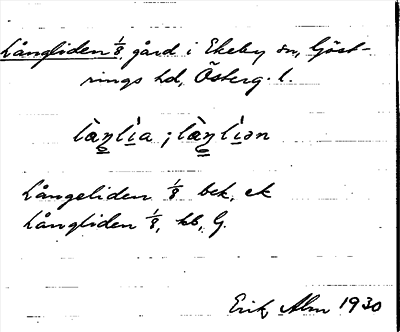 Långliden 1/8, gård i Ekeby sn, Göst-
rings hd, Österg. l.
làŋlìa ; làŋlìən
Långeliden 1/8 bek, ek
Långliden 1/8, kb, G.
Erik Alm 1930